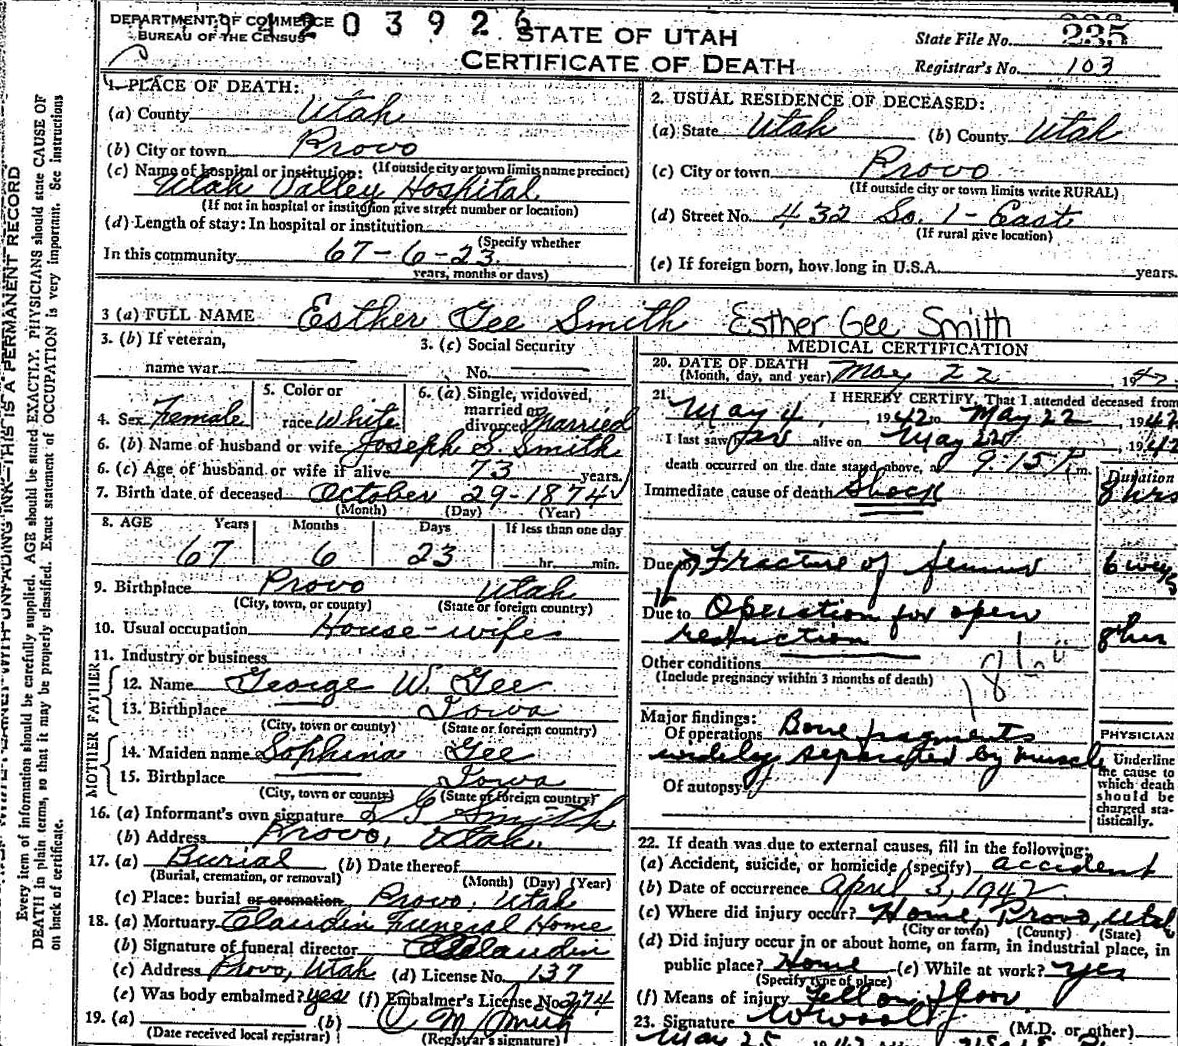 DEPARTMENT OF COMMERCE
BUREAU OF THE CENSUS
203926
STATE OF UTAH
CERTIFICATE OF DEATH
State File No. 235
Registrar's No. 103
1. PLACE OF DEATH:
(a) County Utah
(b) City or town Provo
(If outside city or town limits name precinct)
(c) Name of hospital or institution:
Utah Valley Hospital
(If not in hospital or institution give street number or location)
(d) Length of stay: In hospital or institution
(Specify whether
In this community 67-6-23
years, months or days)
2. USUAL RESIDENCE OF DECEASED:
(a) State Utah (b) County Utah
(c) City or town Provo
(If outside city or town limits write RURAL)
(d) Street No. 432 So. 1-East
(If rural give location)
(e) If foreign born, how long in U.S.A. years.
3 (a) FULL NAME Esther Gee Smith Esther Gee Smith
3. (b) If veteran,
name war
3. (c) Social Security
No.
4. Sex Female
5. Color or
race White
6. (a) Single, widowed,
married or
divorced Married
6. (b) Name of husband or wife Joseph S. Smith
6. (c) Age of husband or wife if alive 73 years.
7. Birth date of deceased October 29-1874
(Month) (Day) (Year)
8. AGE Years Months Days If less than one day
67 6 23 hr. min.
9. Birthplace Provo Utah
(City, town, or county) (State or foreign country)
10. Usual occupation House-wife
11. Industry or business
FATHER
12. Name George W. Gee
13. Birthplace Iowa
(City, town or county) (State or foreign country)
MOTHER
14. Maiden name Sophina Gee
15. Birthplace Iowa
(City, town or county) (State or foreign country)
16. (a) Informant's own signature Smith
(b) Address Provo, Utah.
17. (a) Burial (b) Date thereof
(Burial, cremation, or removal) (Month) (Day) (Year)
(c) Place: burial or cremation Provo, Utah
18. (a) Mortuary Claudin Funeral Home
(b) Signature of funeral director Claudin
(c) Address Provo, Utah (d) License No. 137
(e) Was body embalmed? yes (f) Embalmer's License No. 274
19. (a) (b)
(Date received local registrar) (Registrar's signature)
MEDICAL CERTIFICATION
20. DATE OF DEATH
(Month, day, and year) May 22, 1942
21. I HEREBY CERTIFY, That I attended deceased from
May 4, 1942 to May 22, 1942
I last saw her alive on May 22, 1942
death occurred on the date stated above, at 9:15 P.m.
Duration
Immediate cause of death Shock 8 hrs
Due to Fracture of femur 6 wks
Due to Operation for open
reduction 8 hrs
Other conditions
(Include pregnancy within 3 months of death)
Major findings:
Of operations Bone fragments
widely separated by muscle
Of autopsy
PHYSICIAN
Underline
the cause to
which death
should be
charged sta-
tistically.
22. If death was due to external causes, fill in the following:
(a) Accident, suicide, or homicide (specify) accident
(b) Date of occurrence April 3, 1942
(c) Where did injury occur? Home, Provo, Utah
(City or town) (County) (State)
(d) Did injury occur in or about home, on farm, in industrial place, in
public place? Home (e) While at work? yes
(Specify type of place)
(f) Means of injury Fell on floor
23. Signature
(M.D. or other)
May 25
THIS IS A PERMANENT RECORD
Every item of information should be carefully supplied. AGE should be stated EXACTLY. PHYSICIANS should state CAUSE OF
DEATH in plain terms, so that it may be properly classified. Exact statement of OCCUPATION is very important. See Instructions
on back of certificate.